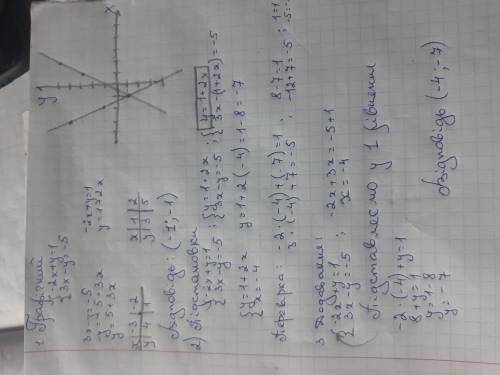 1. Графічний
{-2x+y=1
{3x-y=-5
3x-y=-5
-y=-5-3x
y=5+3x
x|-3|-2
y|-4|-1
-2x+y=1
y=1+2x
x|1|2
y|3|5
y
x
Відповідь: (-1; -1)
2) Підстановки
{-2x+y=1
{3x-y=-5 ; {y=1+2x
{3x-y=-5 ; {y=1+2x
{3x-(1+2x)=-5
{y=1+2x
{x=-4
y=1+2(-4)=1-8=-7
Перевірка: -2·(-4)+(-7)=1 ; 8-7=1 ; 1=1
3·(-4)+7=-5 ; -12+7=-5 ; -5=-5
3 Додавання:
{-2x+y=1
{3x-y=-5 ; -2x+3x=-5+1
x=-4
Підставляємо у 1 рівняння
-2·(-4)+y=1
8+y=1
y=1-8
y=-7
Відповідь (-4; -7)